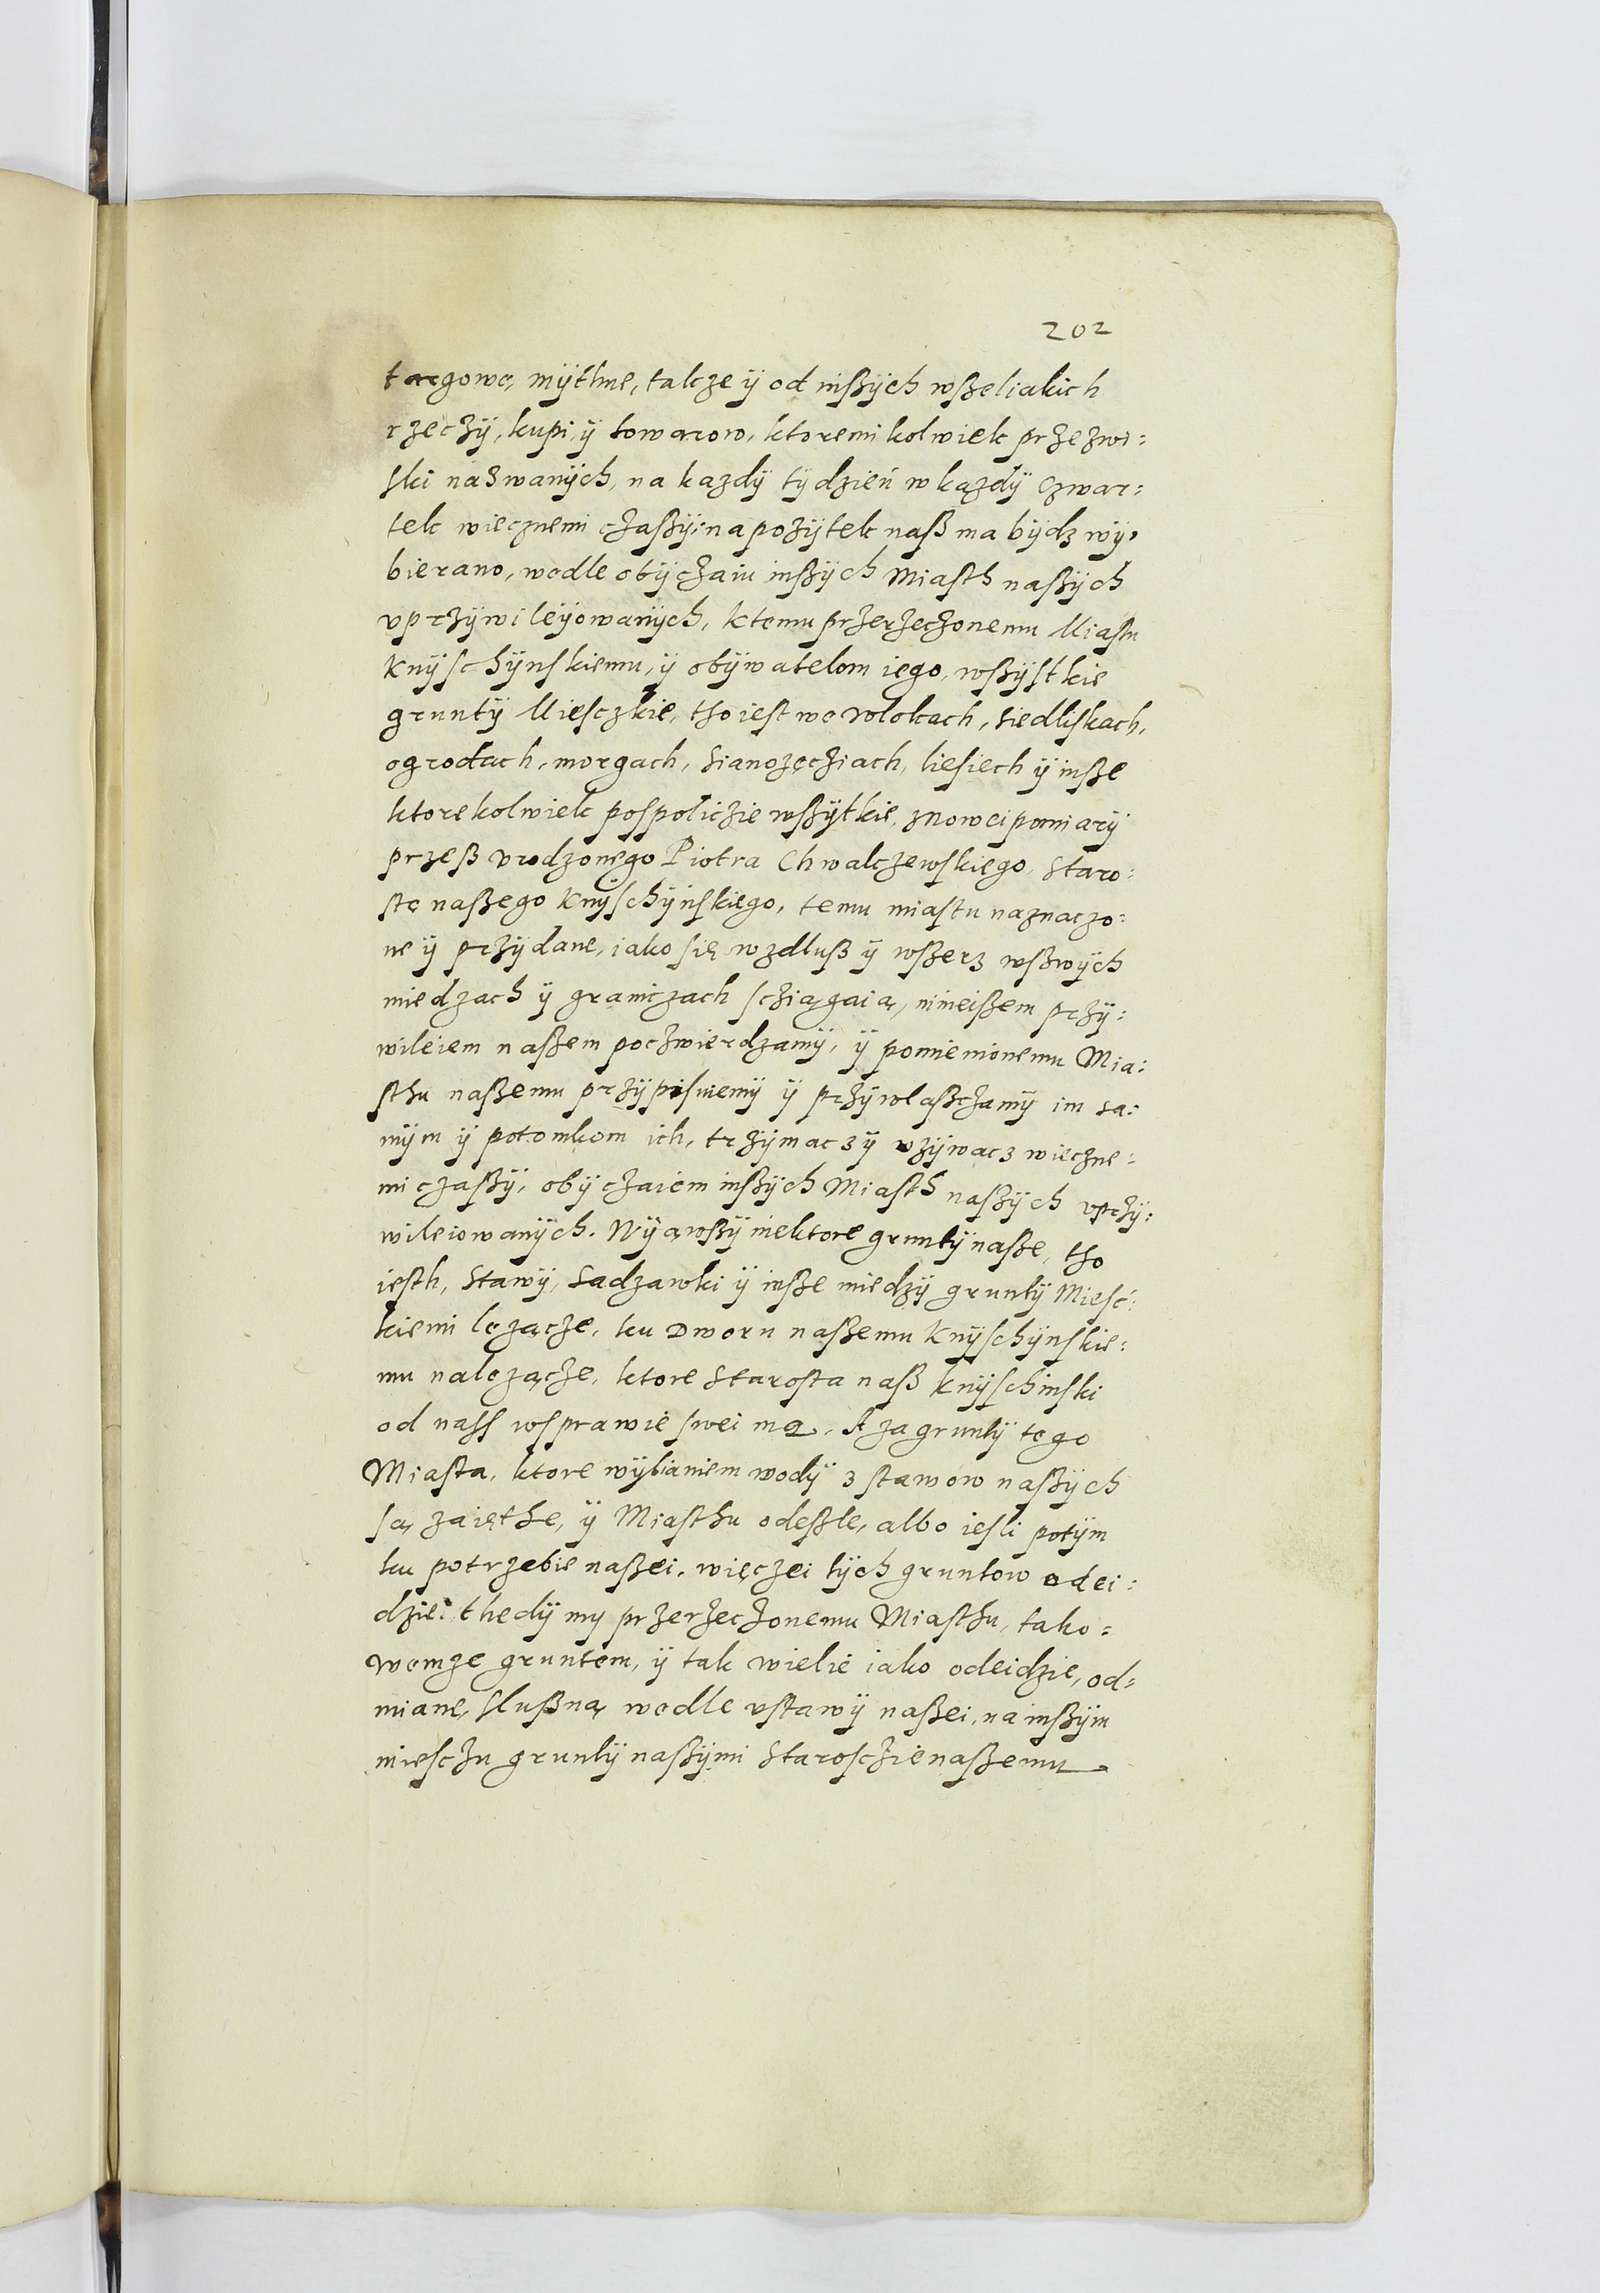 202
targowe, mÿthne, takze ÿ od inßÿch wßeliakich
rzeczÿ, kupi, ÿ towarow, ktoremi kolwiek przezwi:
ski nazwanÿch, na kazdÿ tÿdzień w kązdÿ Czwar:
tek wiecznemi czaßÿ, na pozÿtek naß ma bÿdz wÿ:
bierano, wedle obÿczaiu inßÿch Miasth naßÿch
vprzÿwileÿowanÿch, ktemu przerzeczonemu Miastu
Knÿschÿnskiemu, ÿ obÿwatelom iego, wßÿstkie
gruntÿ Miesczkie, tho iest we wlokach, siedliskach,
ogrodach, morgach, sianozęcziach, liesiech ÿ inße
ktorekolwiek pospoliczie wßÿtkie, znowei pomiarÿ
przeß vrodzonego Piotra Chwalczewskiego, Staro:
stę naßego Knÿschÿnskiego, temu miastu naznaczo:
ne ÿ przÿdane, iako się wzdluß ÿ wßerz wßwÿch
miedzach ÿ graniczach scziągaią, ninieißem przÿ:
wileiem naßem poczwierdzamÿ, ÿ pomienionemu Mia:
sthu naßemu przÿpisuiemÿ ÿ przÿwlaßczamÿ im sa:
mÿm ÿ potomkom ich, trzÿmacz ÿ vzÿwacz wieczne:
mi czaßÿ, obÿczaiem inßÿch Miasth naßÿch vprzÿ:
wileiowanÿch. Wÿąwßÿ niektore gruntÿ naße, tho
iesth, Stawÿ, Sadzawki ÿ inße miedzÿ gruntÿ Miesć:
kiemi lezącze, ku Dworu naßemu Knÿschÿnskie:
mu nalezącze, ktore Starosta naß Knÿschinski
od nass wsprawie swei ma. A za gruntÿ tego
Miasta, ktore wÿlianiem wodÿ z stawow naßÿch
są zaięthe, ÿ Miasthu odeszle, albo iesli potÿm
ku potrzebie naßei, więczei tÿch gruntow odei:
dzie: thedÿ my przerzeczonemu Miasthu, tako:
wemze gruntem, ÿ tak wielie iako odeidzie, od:
mianę slußną wedle vstawÿ naßei, na inßÿm
miesczu gruntÿ naßÿmi Staroscziе naßemu